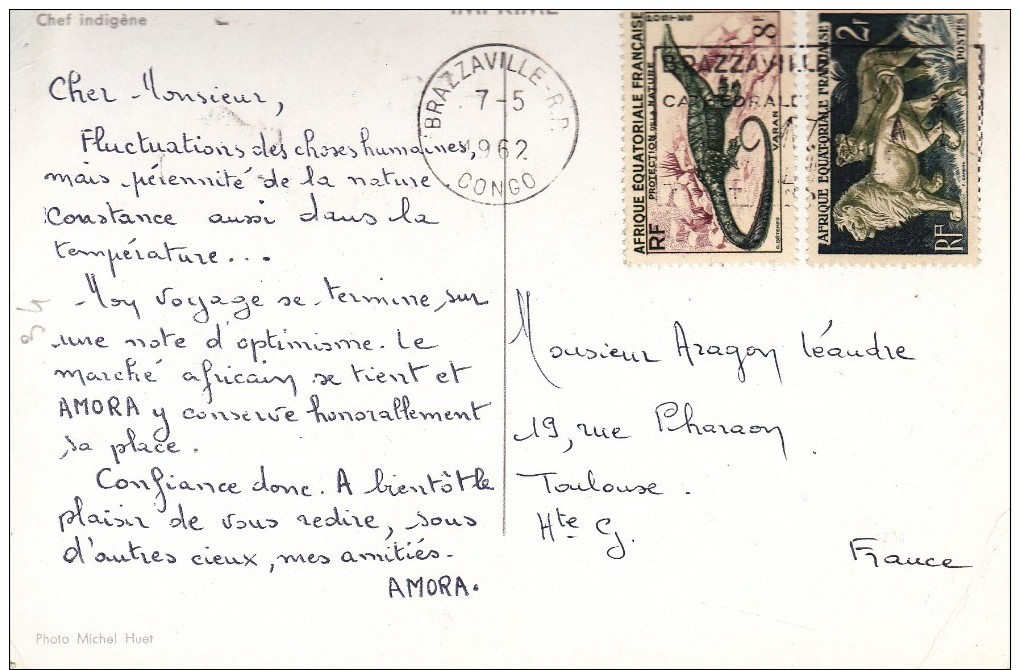 Chef indigène
IMPRIMÉ
Cher Monsieur,
Fluctuations des choses humaines,
mais pérennité de la nature.
Constance aussi dans la
température...
Mon voyage se termine sur
une note d'optimisme. Le
marché africain se tient et
AMORA y conserve honorablement
sa place.
Confiance donc. A bientôt le
plaisir de vous redire, sous
d'autres cieux, mes amitiés.
AMORA.
Photo Michel Huet
BRAZZAVILLE-R.P.
7-5
1962
CONGO
BRAZZAVILLE
CATHEDRALE
AFRIQUE EQUATORIALE FRANÇAISE
PROTECTION DE LA NATURE
POSTES
8F
VARAN
RF
AFRIQUE EQUATORIALE FRANÇAISE
2F
POSTES
RF
Monsieur Aragon Léandre
19, rue Pharaon
Toulouse.
Hte G.
France